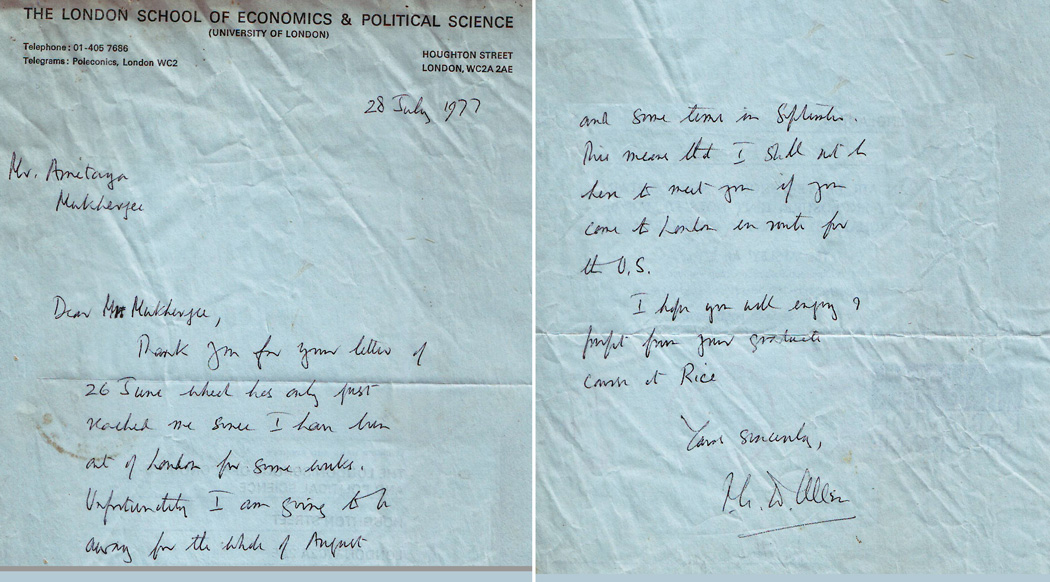 THE LONDON SCHOOL OF ECONOMICS & POLITICAL SCIENCE
(UNIVERSITY OF LONDON)
Telephone: 01-405 7686
Telegrams: Poleconics, London WC2
HOUGHTON STREET
LONDON, WC2A 2AE
28 July 1977
Mr. Amitava
Mukherjee
Dear Mr Mukherjee,
Thank you for your letter of
26 June which has only just
reached me since I have been
out of London for some weeks.
Unfortunately I am going to be
away for the whole of August
and some time in September.
This means that I shall not be
here to meet you if you
come to London en route for
the U.S.
I hope you will enjoy &
profit from your graduate
course at Rice
Yours sincerely,
R. G. D. Allen